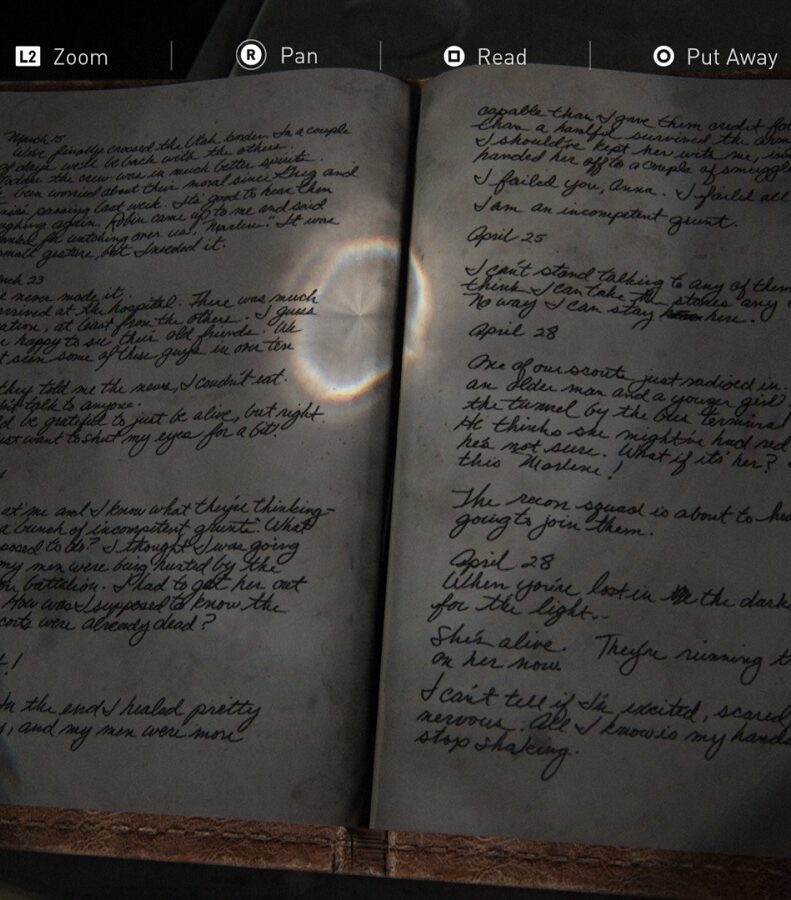 L2 Zoom
R Pan
Read
Put Away
March 5
We've finally crossed the Utah border. In a couple
of days we'll be back with the others.
the crew was in much better spirits.
been worried about their moral since Greg and
passing last week. It's good to hear them
again. Robin came up to me and said
for watching over us, Marlene." It was
small gesture, but I needed it.
23
never made it.
arrived at the hospital. There was much
at least from the others. I guess
happy to see their old friends. We
seen some of these guys in over ten
they told me the news, I couldn't eat.
talk to anyone.
be grateful to just be alive, but right
just want to shut my eyes for a bit.
at me and I know what they're thinking-
a bunch of incompetent grunts. What
to do? I thought I was going
my men were being hunted by the
battalion. I had to get her out
How was I supposed to know the
were already dead?
!
In the end I healed pretty
, and my men were more
capable than I gave them credit for
than a handful survived the
I should've kept her with me,
handed her off to a couple of
I failed you, Anna. I failed all
I am an incompetent grunt.
April 25
I can't stand talking to any of them
think I can take stares any
No way I can stay here.
April 28
One of our scouts just radioed in.
an older man and a younger girl
the tunnel by the bus terminal
He thinks she might've had red
he's not sure. What if it's her?
this Marlene!
The recon squad is about to
going to join them.
April 28
When you're lost in the dark
for the light..
She's alive. They're running
on her now
I can't tell if I'm excited, scared
nervous. All I know is my hands
stop shaking.